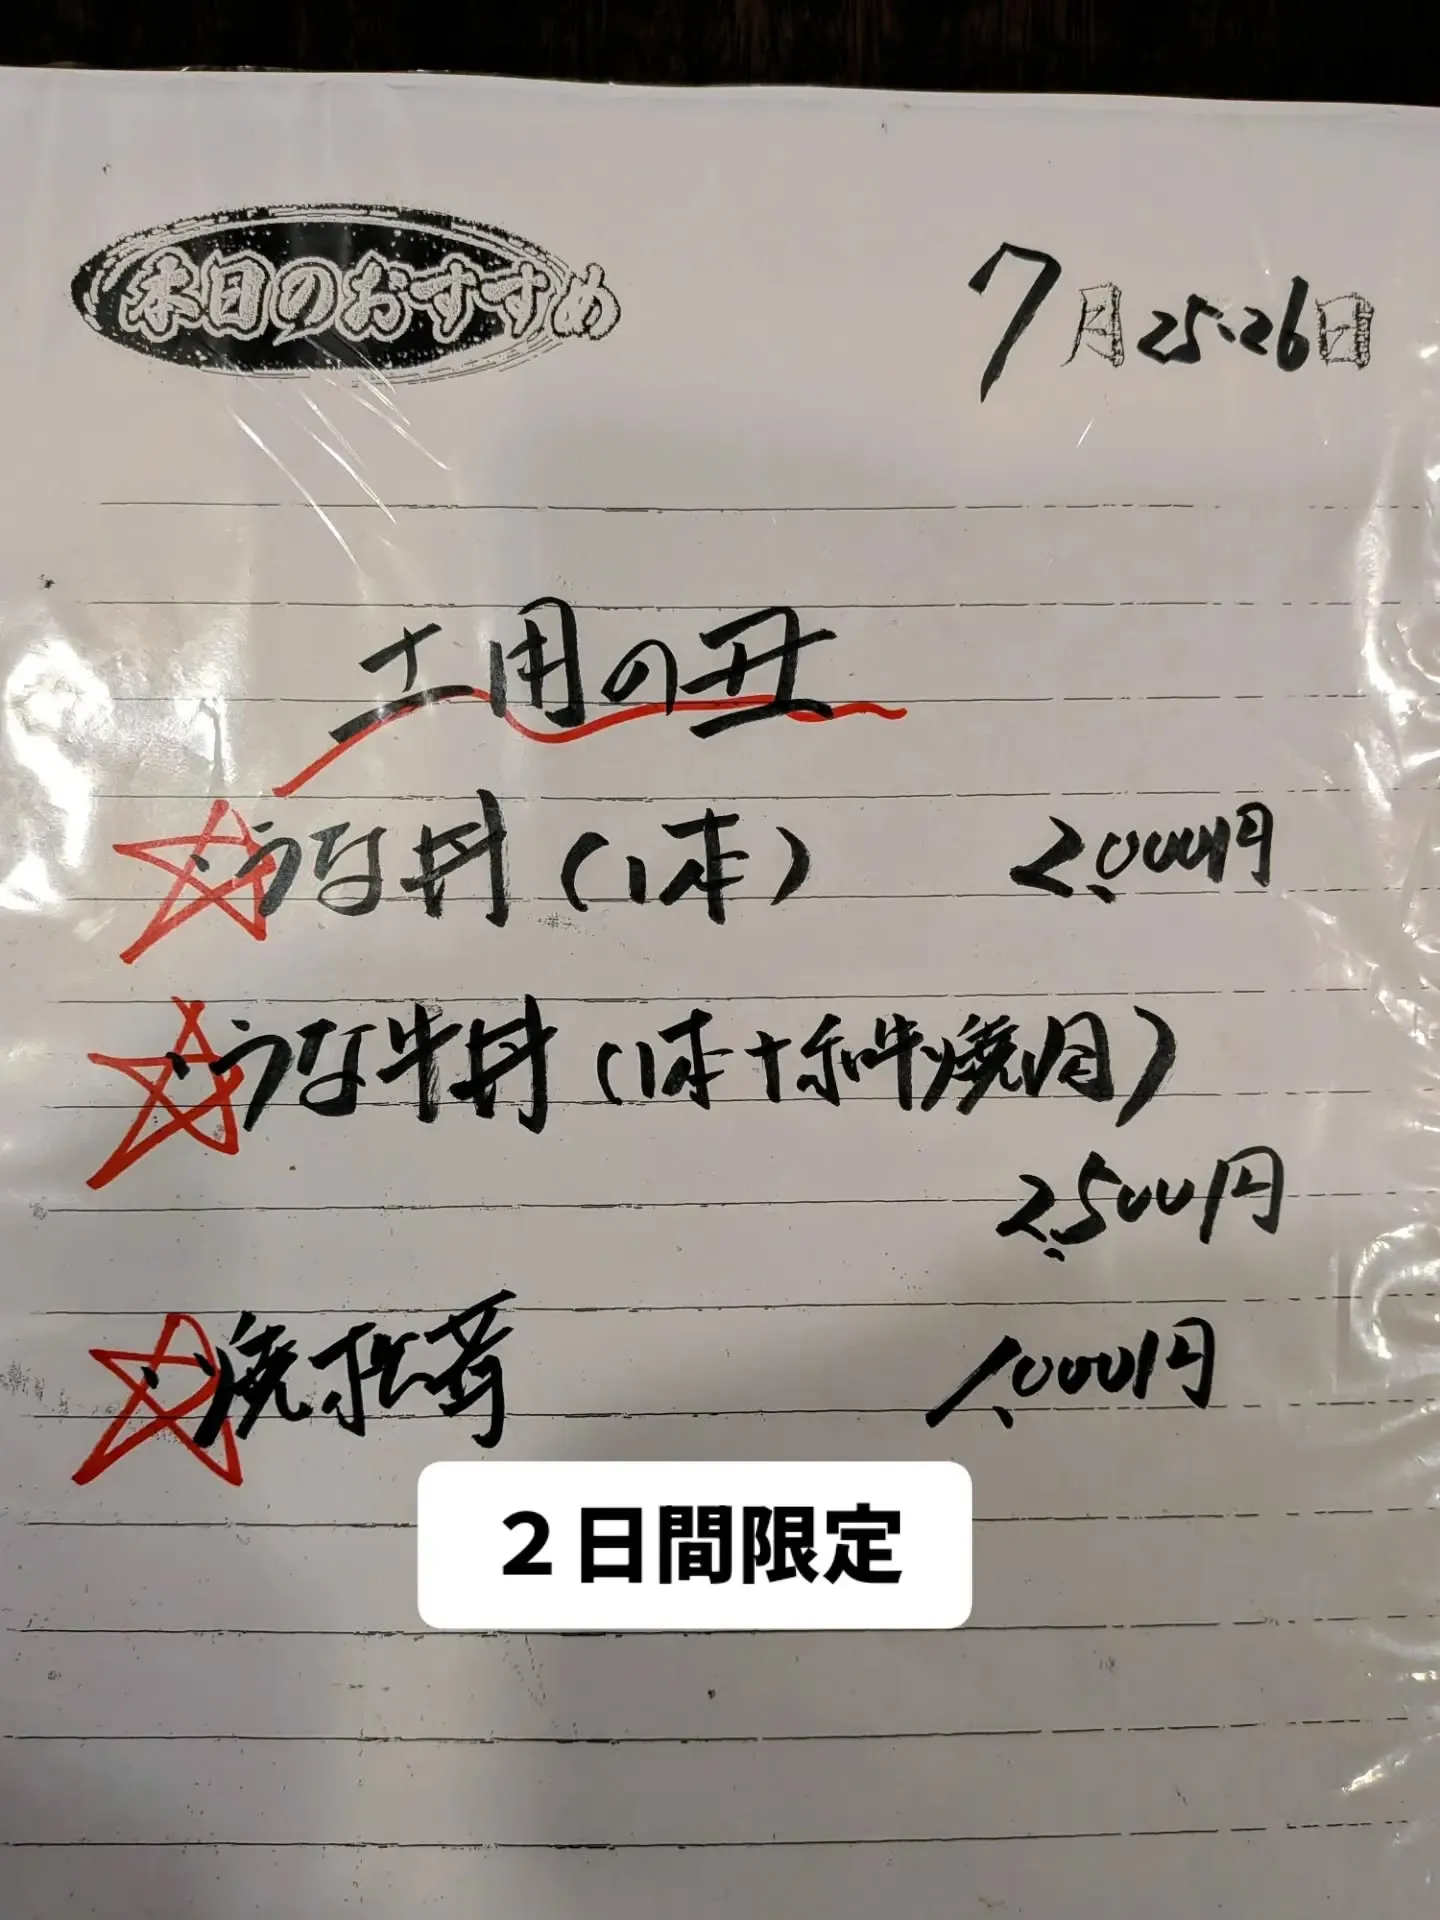 本日のおすすめ
7月25.26日
土用の丑
・うな丼(1本) 2,000円
・うな牛丼(1本+和牛焼肉)
2,500円
・焼松茸 1,000円
2日間限定